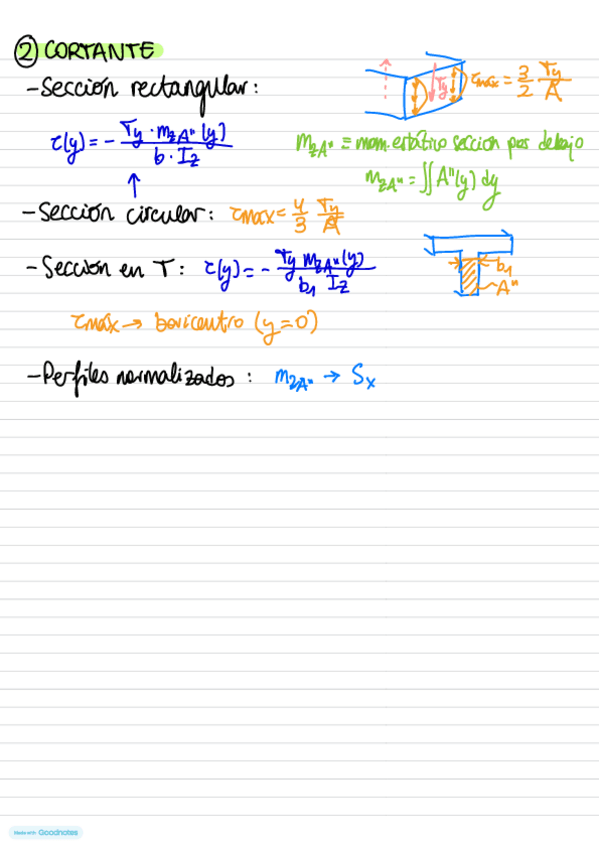 ② CORTANTE
- Sección rectangular:
τmax = 3/2 Ty/A
Ty
τ(y) = - Ty · mzA"(y) / b · Iz
mzA" ≡ mom. estático sección por debajo
mzA" = ∬ A"(y) dy
- Sección circular: τmax = 4/3 Ty/A
- Sección en T: τ(y) = - Ty mzA"(y) / b1 Iz
b1
A"
τmáx → baricentro (y=0)
- Perfiles normalizados: mzA" → Sx
Made with Goodnotes